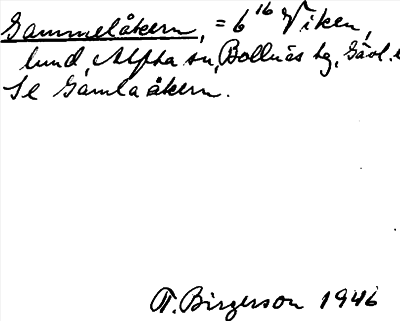 Gammelåkern, = 6¹⁶ Viken,
lund, Alfta sn, Bollnäs tg, Gävl. l
Se Gamlaåkern.
T. Birgerson 1946